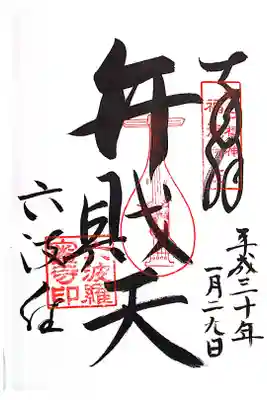 奉拝
平成三十年
一月二九日
弁財天
六波羅
六波羅
蜜寺印